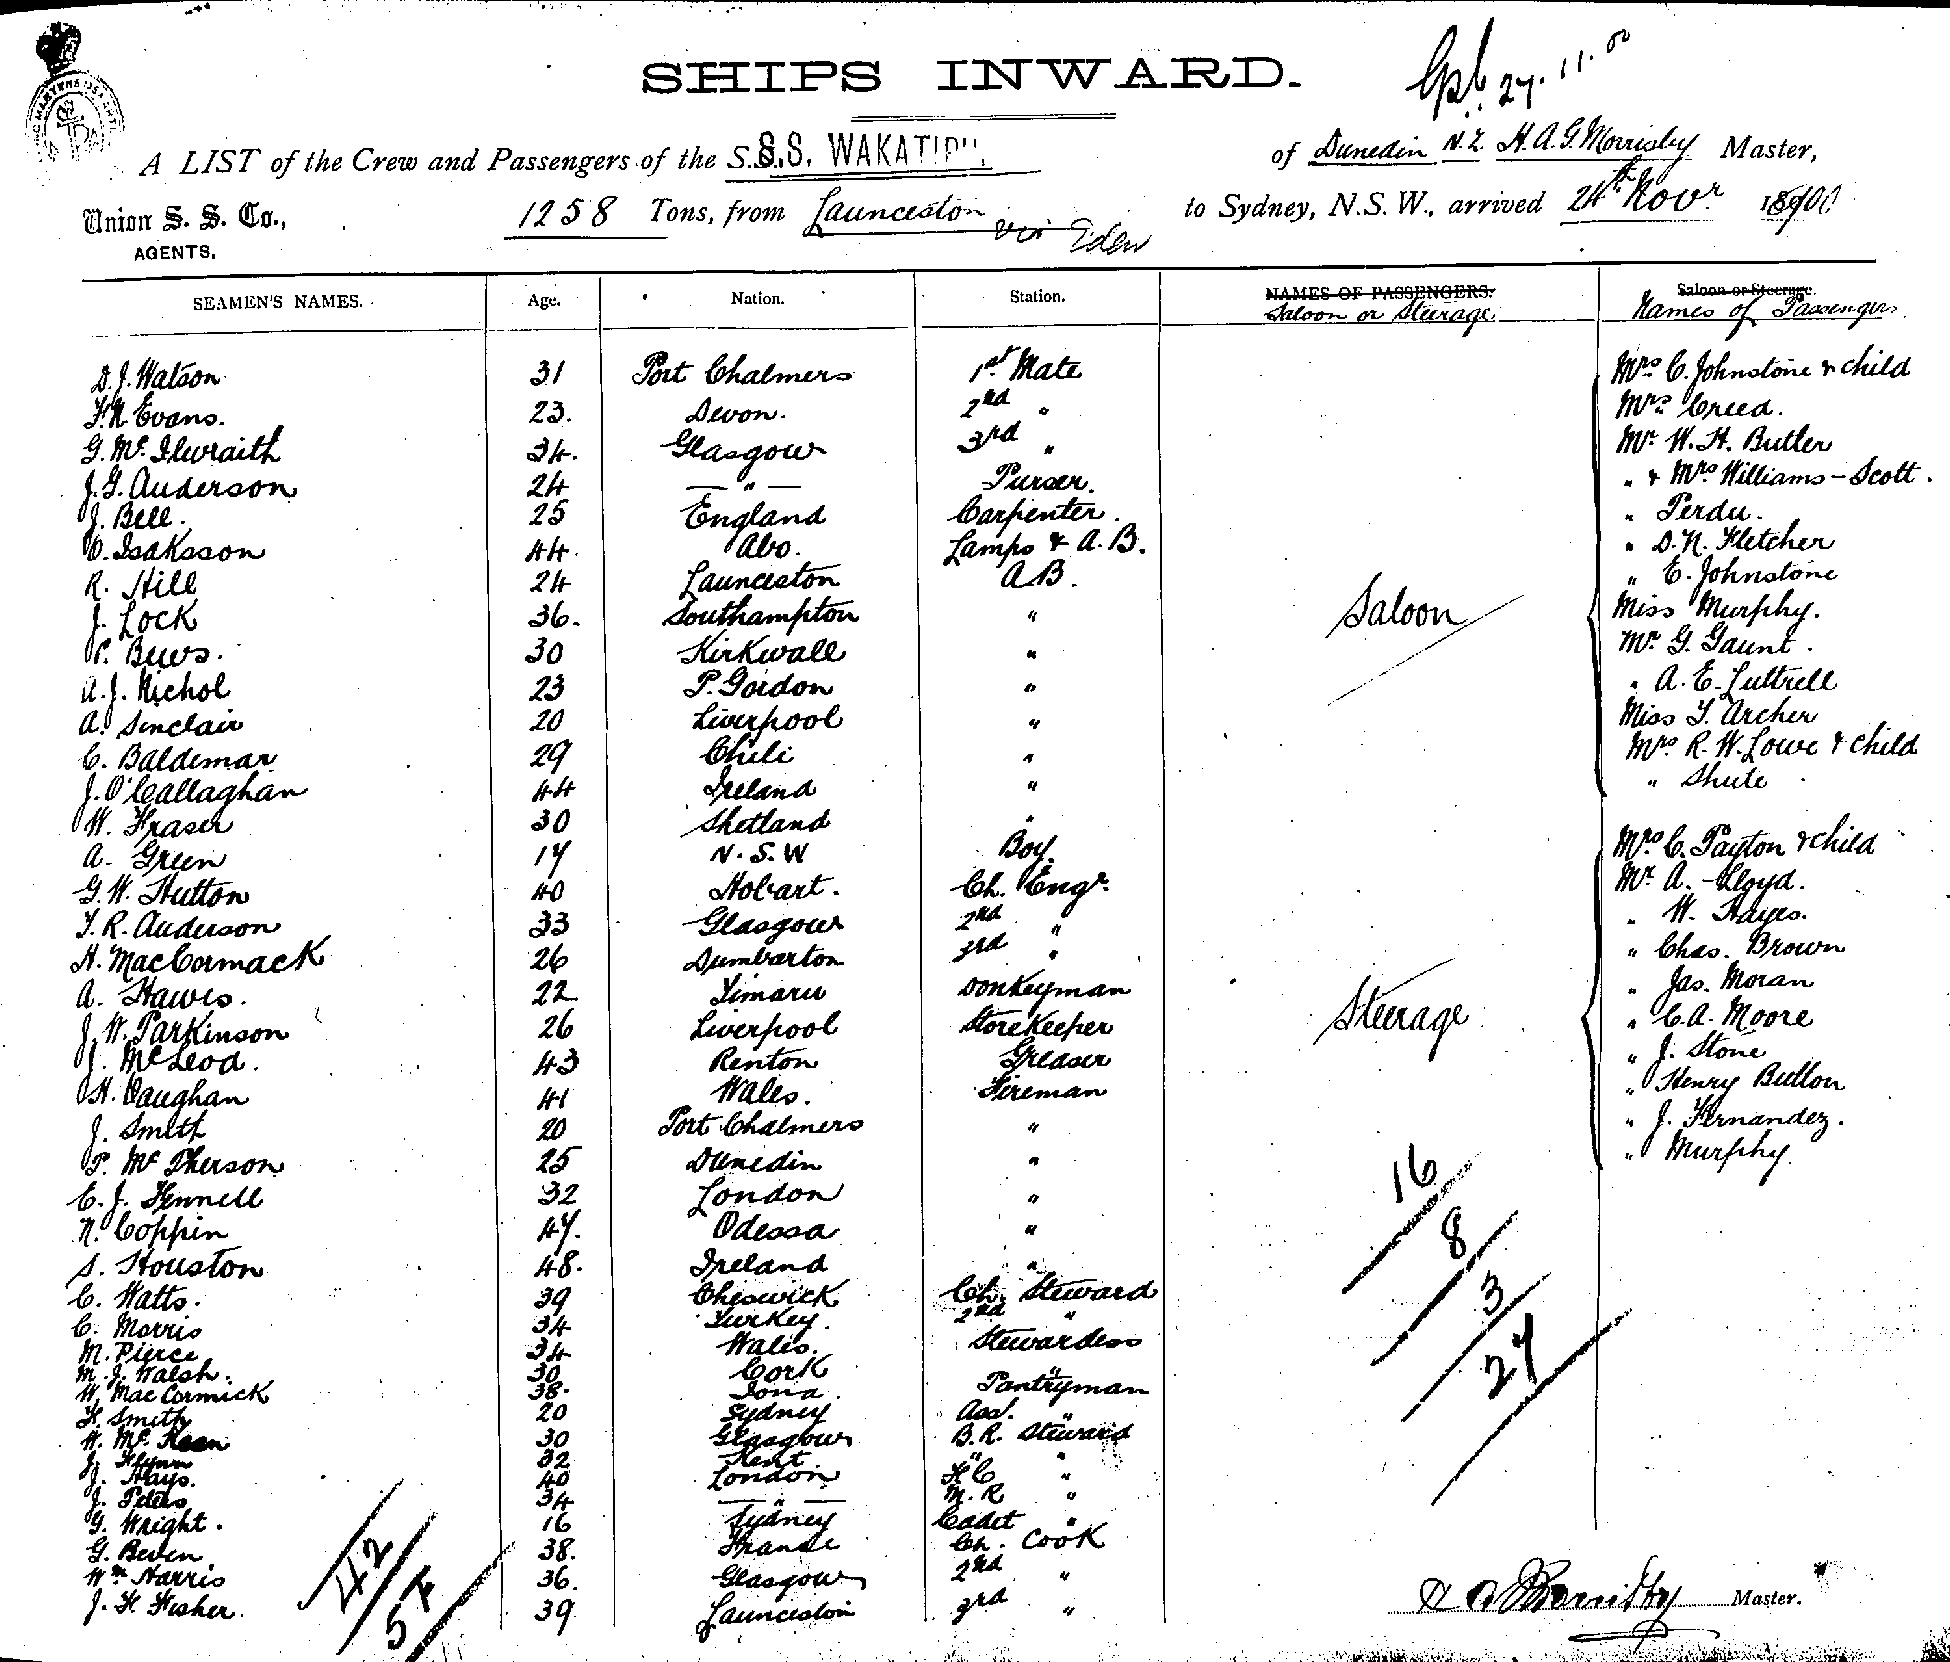 SHIPS INWARD.
27.11.00
A LIST of the Crew and Passengers of the S.S. S.S. WAKATIPU, of Dunedin N.Z. H.A.G. Morrisby Master,
Union S. S. Co., AGENTS. 1258 Tons, from Launceston via Eden to Sydney, N.S.W., arrived 24th Novr 1900
SEAMEN'S NAMES. Age. Nation. Station. NAMES OF PASSENGERS. Saloon or Steerage. Saloon or Steerage. Names of Passengers
D.J. Watson 31 Port Chalmers 1st Mate
F.N. Evans. 23. Devon. 2nd "
G. Mc Ilwraith 34. Glasgow 3rd "
J.G. Anderson 24 — " — Purser.
J. Bell. 25 England Carpenter.
O. Isaksson 44. Abo. Lamps & A.B.
R. Hill 24 Launceston A B.
J. Lock 36. Southampton "
P. Bews. 30 Kirkwall "
A.J. Nichol 23 P. Gordon "
A. Sinclair 20 Liverpool "
C. Baldemar 29 Chili "
J. O'Callaghan 44 Ireland "
W. Fraser 30 Shetland "
A. Green 17 N.S.W Boy.
G.W. Hutton 40 Hobart. Ch. Engr.
T.R. Anderson 33 Glasgow 2nd "
H. MacCormack 26 Dumbarton 3rd "
A. Hawes. 22 Timaru Donkeyman
J.W. Parkinson 26 Liverpool Storekeeper
J. McLeod. 43 Renton Greaser
H. Vaughan 41 Wales. Fireman
J. Smith 20 Port Chalmers "
P. Mc Pherson 25 Dunedin "
C.J. Fennell 32 London "
N. Coppin 47. Odessa "
S. Houston 48. Ireland "
C. Watts. 39 Cheswick Ch. Steward
C. Morris 34 Turkey. 2nd "
M. Pierce 34 Wales. Stewardess
M.J. Walsh. 30 Cork "
W. MacCormick 38. Iona. Pantryman
F. Smith 20 Sydney Asst. "
W. Mc Keen 30 Glasgow B.R. Steward
J. Flynn 32 Kent " "
J. Hays. 40 London F.C "
J. Peters 34 — " — M.R "
G. Wright. 16 Sydney Cadet "
G. Beven 38. France Ch. Cook
Wm Harris 36. Glasgow 2nd "
J.F. Fisher. 39 Launceston 3rd "
42
54
Saloon
Mrs C. Johnstone & child
Mrs Creed.
Mr W.H. Butler
" & Mrs Williams-Scott.
" Perdu.
" D.N. Fletcher
" E. Johnstone
Miss Murphy.
Mr G. Gaunt.
" A.E. Luttrell
Miss T. Archer
Mrs R.W. Lowe & child
" Shute
Steerage
Mrs C. Payton & child
Mr A. Lloyd.
" W. Hayes.
" Chas. Brown
" Jas. Moran
" C.A. Moore
" J. Stone
" Henry Button
" J. Fernandez.
" Murphy.
16
8
3
27
Master.